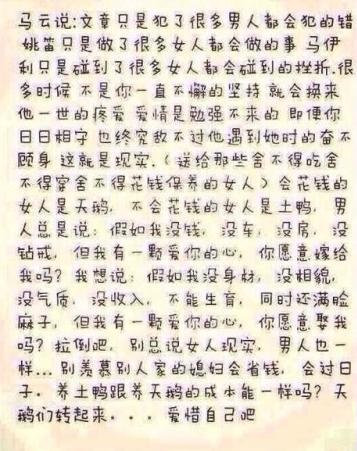 马云说:文章只是犯了很多男人都会犯的错
姚笛只是做了很多女人都会做的事 马伊
利只是碰到了很多女人都会碰到的挫折.很
多时候 不是你一直不懈的坚持 就会换来
他一世的疼爱 爱情是勉强不来的 即便你
日日相守 也终究敌不过他遇到她时的奋不
顾身 这就是现实.(送给那些舍不得吃舍
不得穿舍不得花钱保养的女人)会花钱的
女人是天鹅,不会花钱的女人是土鸭,男
人总是说:假如我没钱,没车,没房,没
钻戒,但我有一颗爱你的心,你愿意嫁给
我吗?我想说:假如我没身材,没相貌,
没气质,没收入,不能生育,同时还满脸
麻子,但我有一颗爱你的心,你愿意娶我
吗?拉倒吧,别总说女人现实,男人也一
样...别羡慕别人家的媳妇会省钱,会过日
子.养土鸭跟养天鹅的成本能一样吗?天
鹅们转起来...爱惜自己吧